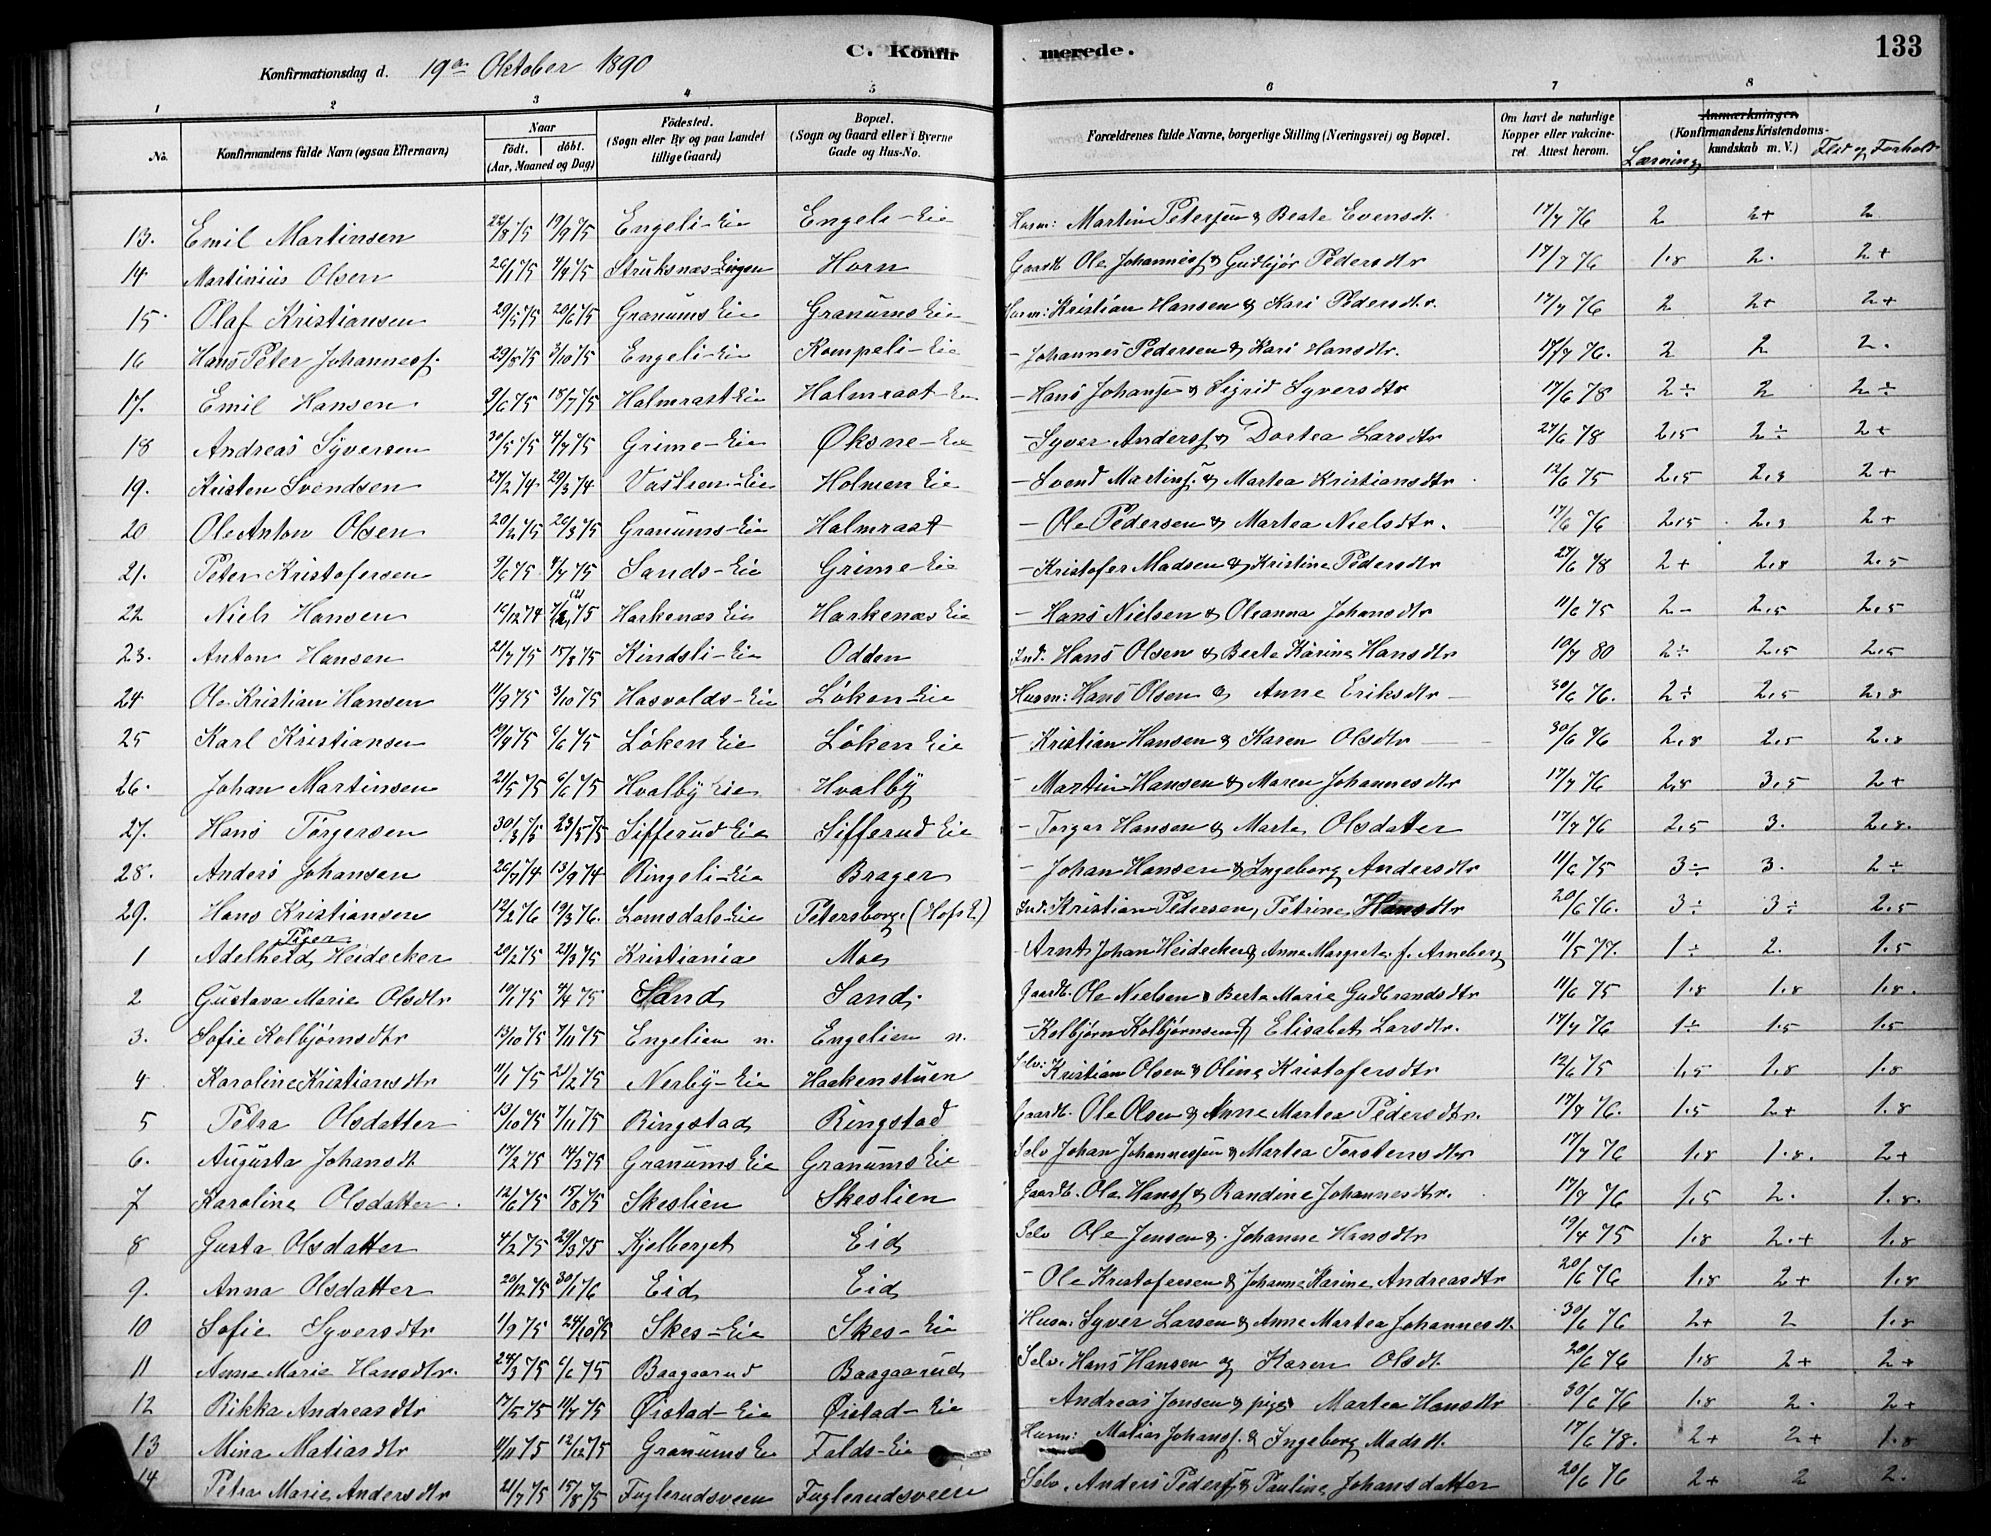 C. Konfirmerede. 133
Konfirmationsdag d. 19de Oktober 1890
1 2 3 4 5 6 7 8
No. Konfirmandens fulde Navn (ogsaa Efternavn) Naar født. døbt. (Aar, Maaned og Dag) Fødested. (Sogn eller By og paa Landet tillige Gaard) Bopæl. (Sogn og Gaard eller i Byerne Gade og Hus-No. Forældrenes fulde Navne, borgerlige Stilling (Næringsvei) og Bopæl. Om havt de naturlige Kopper eller vakcineret. Attest herom. Anmærkninger. (Konfirmandens Kristendomskundskab m. V.) Læsning Flid og Forhold
13. Emil Martinsen 22/8 75 19/9 75 Engeli-Eie Engeli-Eie Husm: Martin Petersen & Beate Evensdt. 17/7 76 2 2+ 2
14 Martinius Olsen 26/1 75 4/4 75 Struksnæs-Eiegen Horn Gaardb. Ole Johannesf & Gudbjør Pedersdtr 17/7 76 1.8 2. 2+
15 Olaf Kristiansen 29/5 75 20/6 75 Granums Eie Granums Eie Husm: Kristian Hansen & Kari Pedersdtr. 17/7 76 2 2+ 2+
16 Hans Peter Johannesf. 29/8 75 3/10 75 Engeli-Eie Kompeli-Eie - Johannes Pedersen & Kari Hansdtr. 17/7 76. 2 2 2.
17. Emil Hansen 9/6 75 18/7 75 Halmrast Eie Halmrast-Eie - Hans Johansf & Sigrid Syversdtr 17/6 78 2÷ 2 2÷
18 Andreas Syversen 30/5 75 4/7 75 Grime-Eie Øksne-Eie - Syver Andersf & Dortea Larsdtr 27/6 78 2.5 2÷ 2+
19. Kristen Svendsen 27/2 74. 29/3 74 Vastren-Eie Holmen Eie - Svend Martinf. & Martea Kristiansdtr 12/6 75 2.5 2.3 2+
20 Ole Anton Olsen 20/2 75 26/3 75 Granums-Eie Halmrast - Ole Pedersen & Martea Nielsdtr. 17/6 76 2.5 2.3 2+
21. Peter Kristofersen 9/6 75 4/7 75 Sands-Eie Grime-Eie - Kristofer Madsen & Kristine Pedersdtr 27/6 78 2+ 2.8 2.5
22 Niels Hansen 16/12 74 75 Harkenæs Eie Harkenæs Eie - Hans Nielsen & Oleanna Johansdtr 11/6 75 2- 2.5 2.5
23. Anton Hansen 21/7 75 15/8 75 Kindsli-Eie Odden Ind. Hans Olsen & Berte Karine Hansdtr 10/7 80 2÷ 2.5 2.5
24 Ole Kristian Hansen 11/9 75 3/10 75 Hasvolds-Eie Løken Eie Husm: Hans Olsen & Anne Eriksdtr 30/6 76. 2÷ 2.5 2.8
25 Karl Kristiansen 19/4 75 6/6 75 Løken Eie Løken Eie - Kristian Hansen & Karen Olsdtr 30/6 76 2.8 2.5 2.8
26. Johan Martinsen 21/5 75 6/6 75 Hvalby Eie Hvalby - Martin Hansen & Maren Johannesdtr 17/7 76 2.8 3.5 2+
27. Hans Torgersen 30/3 75 23/5 75 Sifferud Eie Sifferud Eie - Torger Hansen & Marte Olsdatter 17/7 76 2.5 3. 2.8.
28. Anders Johansen 26/7 74 13/9 74 Ringeli-Eie Brager - Johan Hansen & Ingeborg Andersdtr 11/6 75 3÷ 3. 2÷
29. Hans Kristiansen 12/2 76 19/3 76. Lomsdals-Eie Petersborg. Ind. Kristian Pedersen, Petrine Hansdtr 20/6 76. 3÷ 3÷ 2.5
Piger
1 Adelheid Heidecker 20/2 75 21/3 75 Kristiania Moe Arnt Johan Heidecker & Anne Margrete f. Arneberg 11/5 77. 1÷ 2. 1.5
2 Gustava Marie Olsdtr 19/1 75 4/4 75 Sand Sand. Gaardb. Ole Nielsen & Berte Marie Gudbrandsdtr 11/6 75 1.8 1.8 1.8.
3. Sofie Kolbjørnsdtr 13/10 75 7/11 75 Engelien n. Engelien n. - Kolbjørn Kolbjørnsen & Elisabet Larsdtr. 17/7 76 1÷ 1.5 1.5
4 Karoline Kristiansdtr 11/1 75 21/2 75 Nerby-Eie Haakenstuen Selv: Kristian Olsen & Oline Kristofersdtr 12/6 75 1.5 1.8 1.8
5 Petra Olsdatter 13/10 75 7/11 75 Ringstad Ringstad Gaardb. Ole Olsen & Anne Martea Pedersdtr. 17/7 76. 1.5 2+ 1.8
6. Augusta Johansdt 17/2 75 14/3 75 Granums Eie Granums Eie Selv Johan Johannessen & Martea Torstensdtr 17/7 76 1.8 1.8. 2+
7 Karoline Olsdatter. 12/6 75 15/8 75 Skeslien Skeslien Gaardb. Ole Hansf & Randine Johannesdtr. 17/7 76 1.5 2. 1.8.
8 Gusta Olsdatter 4/2 75 29/3 75 Kjelberget Eid Selv Ole Jensen & Johanne Hansdtr 19/4 75 1.8 2.+ 1.8
9. Anna Olsdatter 20/12 75 30/1 76 Eid Eid - Ole Kristofersen & Johanne Karine Andreasdtr 20/6 76 1.8 2+ 1.8
10 Sofie Syversdtr 1/9 75 24/10 75 Skes-Eie Skes-Eie Husm: Syver Larsen & Anne Martea Johannesdt. 30/6 76 2+ 2 1.8
11 Anne Marie Hansdtr. 24/3 75 6/6 75 Baagaarud Baagaarud Selv. Hans Hansen og Karen Olsdt. 20/6 76 1.8 2+ 2+
12 Rikka Andreasdtr 17/5 75 11/7 75 Øistad-Eie Øistad-Eie Andreas Jonsen & pige Martea Hansdtr 30/6 76 1.8 2. 2+
13 Mina Matiasdtr 4/11 75 12/12 75 Granums Eie Falds-Eie Husm: Matias Johansf. & Ingeborg Madsdt. 17/6 78. 2+ 2+ 1.8
14 Petra Marie Andersdtr 21/7 75 15/8 75 Fuglerudsveen Fuglerudsveen Selv. Anders Pedersf & Pauline Johansdatter 20/6 76 2+ 2 2.